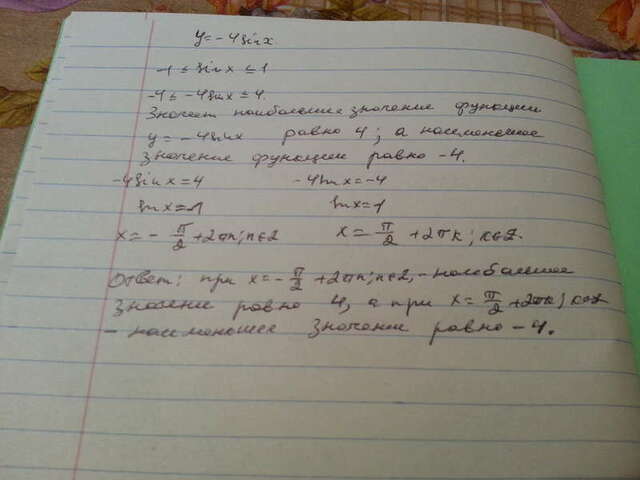 y = -4 sin x
-1 ≤ sin x ≤ 1
-4 ≤ -4 sin x ≤ 4
Значит наибольшее значение функции
y = -4 sin x равно 4; а наименьшее
значение функции равно -4.
-4 sin x = 4 -4 sin x = -4
sin x = 1 sin x = 1
x = -π/2 + 2πn; n∈Z x = π/2 + 2πk; k∈Z.
Ответ: при x = -π/2 + 2πn; n∈Z, - наибольшее
значение равно 4, а при x = π/2 + 2πk; k∈Z
- наименьшее значение равно -4.